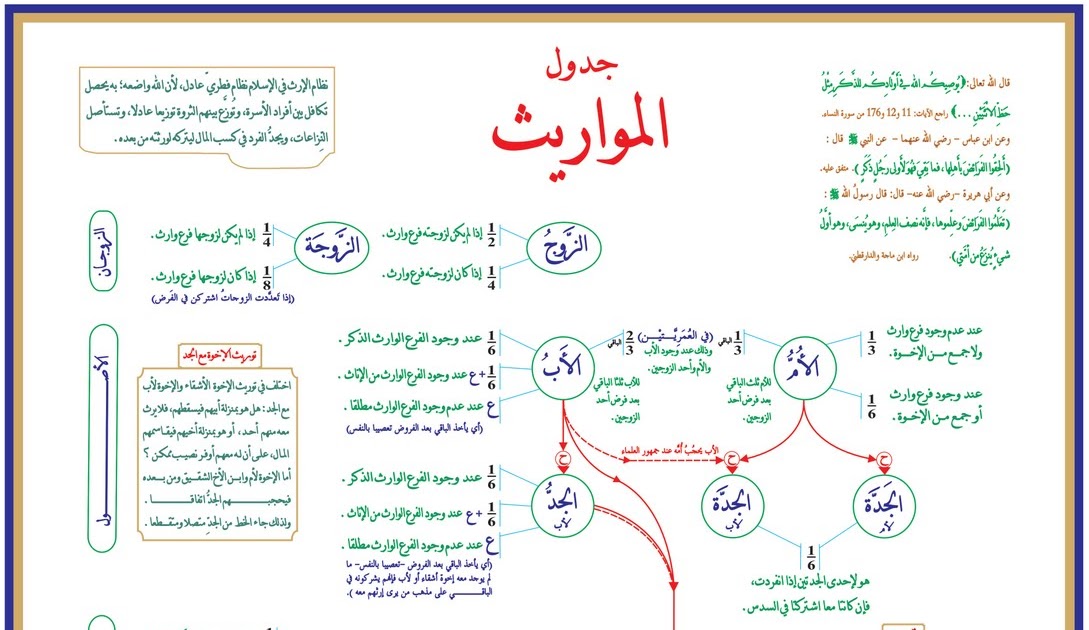 جدول
المواريث
قال الله تعالى: ﴿يُوصِيكُمُ اللهُ فِي أَوْلَادِكُمْ لِلذَّكَرِ مِثْلُ
حَظِّ الْأُنْثَيَيْنِ ...﴾ راجع الآيات: 11 و12 و176 من سورة النساء.
وعن ابن عباس – رضي الله عنهما – عن النبي ﷺ قال :
(أَلْحِقُوا الفَرَائِضَ بِأَهْلِهَا، فما بَقِيَ فَهُوَ لأَوْلَى رَجُلٍ ذَكَرٍ). متفق عليه.
وعن أبي هريرة –رضي الله عنه– قال: قال رسولُ الله ﷺ :
(تَعَلَّمُوا الفَرَائِضَ وعلِّموها، فإنَّه نصف العِلمِ، وهو يُنسى، وهو أوَّلُ
شيءٍ يُنزَعُ من أمَّتي). رواه ابن ماجة والدارقطني.
نظام الإرث في الإسلام نظام فطريّ عادل، لأن الله واضعه؛ به يحصل
تكافل بين أفراد الأسرة، وتُوزَّع بينهم الثروة توزيعا عادلا، وتستأصل
النزاعات، ويجدُّ الفرد في كسب المال ليتركه لورثته من بعده.
الزوجان
الزَّوجُ
1/2 إذا لم يكن لزوجته فرع وارث.
1/4 إذا كان لزوجته فرع وارث.
الزَّوجَة
1/4 إذا لم يكن لزوجها فرع وارث.
1/8 إذا كان لزوجها فرع وارث.
(إذا تعدَّدت الزوجاتُ اشتركن في الفَرض)
الأصول
الأُمُّ
1/3 عند عدم وجود فرع وارث
ولا جمع من الإخوة.
1/6 عند وجود فرع وارث
أو جمع من الإخوة.
1/3 الباقي
(في العُمَرِيَّتَيْن)
وذلك عند وجود الأب
والأم وأحد الزوجين.
2/3 الباقي
للأم ثلث الباقي
بعد فرض أحد
الزوجين.
للأب ثلثا الباقي
بعد فرض أحد
الزوجين.
الأَبُ
1/6 عند وجود الفرع الوارث الذكر.
1/6 + ع عند وجود الفرع الوارث من الإناث.
ع عند عدم وجود الفرع الوارث مطلقا.
(أي يأخذ الباقي بعد الفروض تعصيبا بالنفس)
الأب يحجُبُ أمَّه عند جمهور العلماء
ح
ح
ح
الجَدَّة
لأم
الجَدَّة
لأب
1/6
هو لإحدى الجدتين إذا انفردت،
فإن كانتا معا اشتركتا في السدس.
الجَدُّ
لأب
1/6 عند وجود الفرع الوارث الذكر.
1/6 + ع عند وجود الفرع الوارث من الإناث.
ع عند عدم وجود الفرع الوارث مطلقا.
(أي يأخذ الباقي بعد الفروض –تعصيبا بالنفس– ما
لم يوجد معه إخوة أشقاء أو لأب فإنهم يشركونه في
الباقي على مذهب من يرى إرثهم معه).
توريث الإخوة مع الجد
اختلف في توريث الإخوة الأشقاء والإخوة لأب
مع الجد: هل هو بمنزلة أبيهم فيسقطهم، فلا يرث
معه منهم أحد، أو هو بمنزلة أخيهم فيقاسمهم
المال، على أن له معهم أوفر نصيب ممكن؟
أما الإخوة لأم وابن الأخ الشقيق ومن بعده
فيحجبهم الجدُّ اتفاقا.
ولذلك جاء الخط من الجدّ متصلا ومتقطعا.